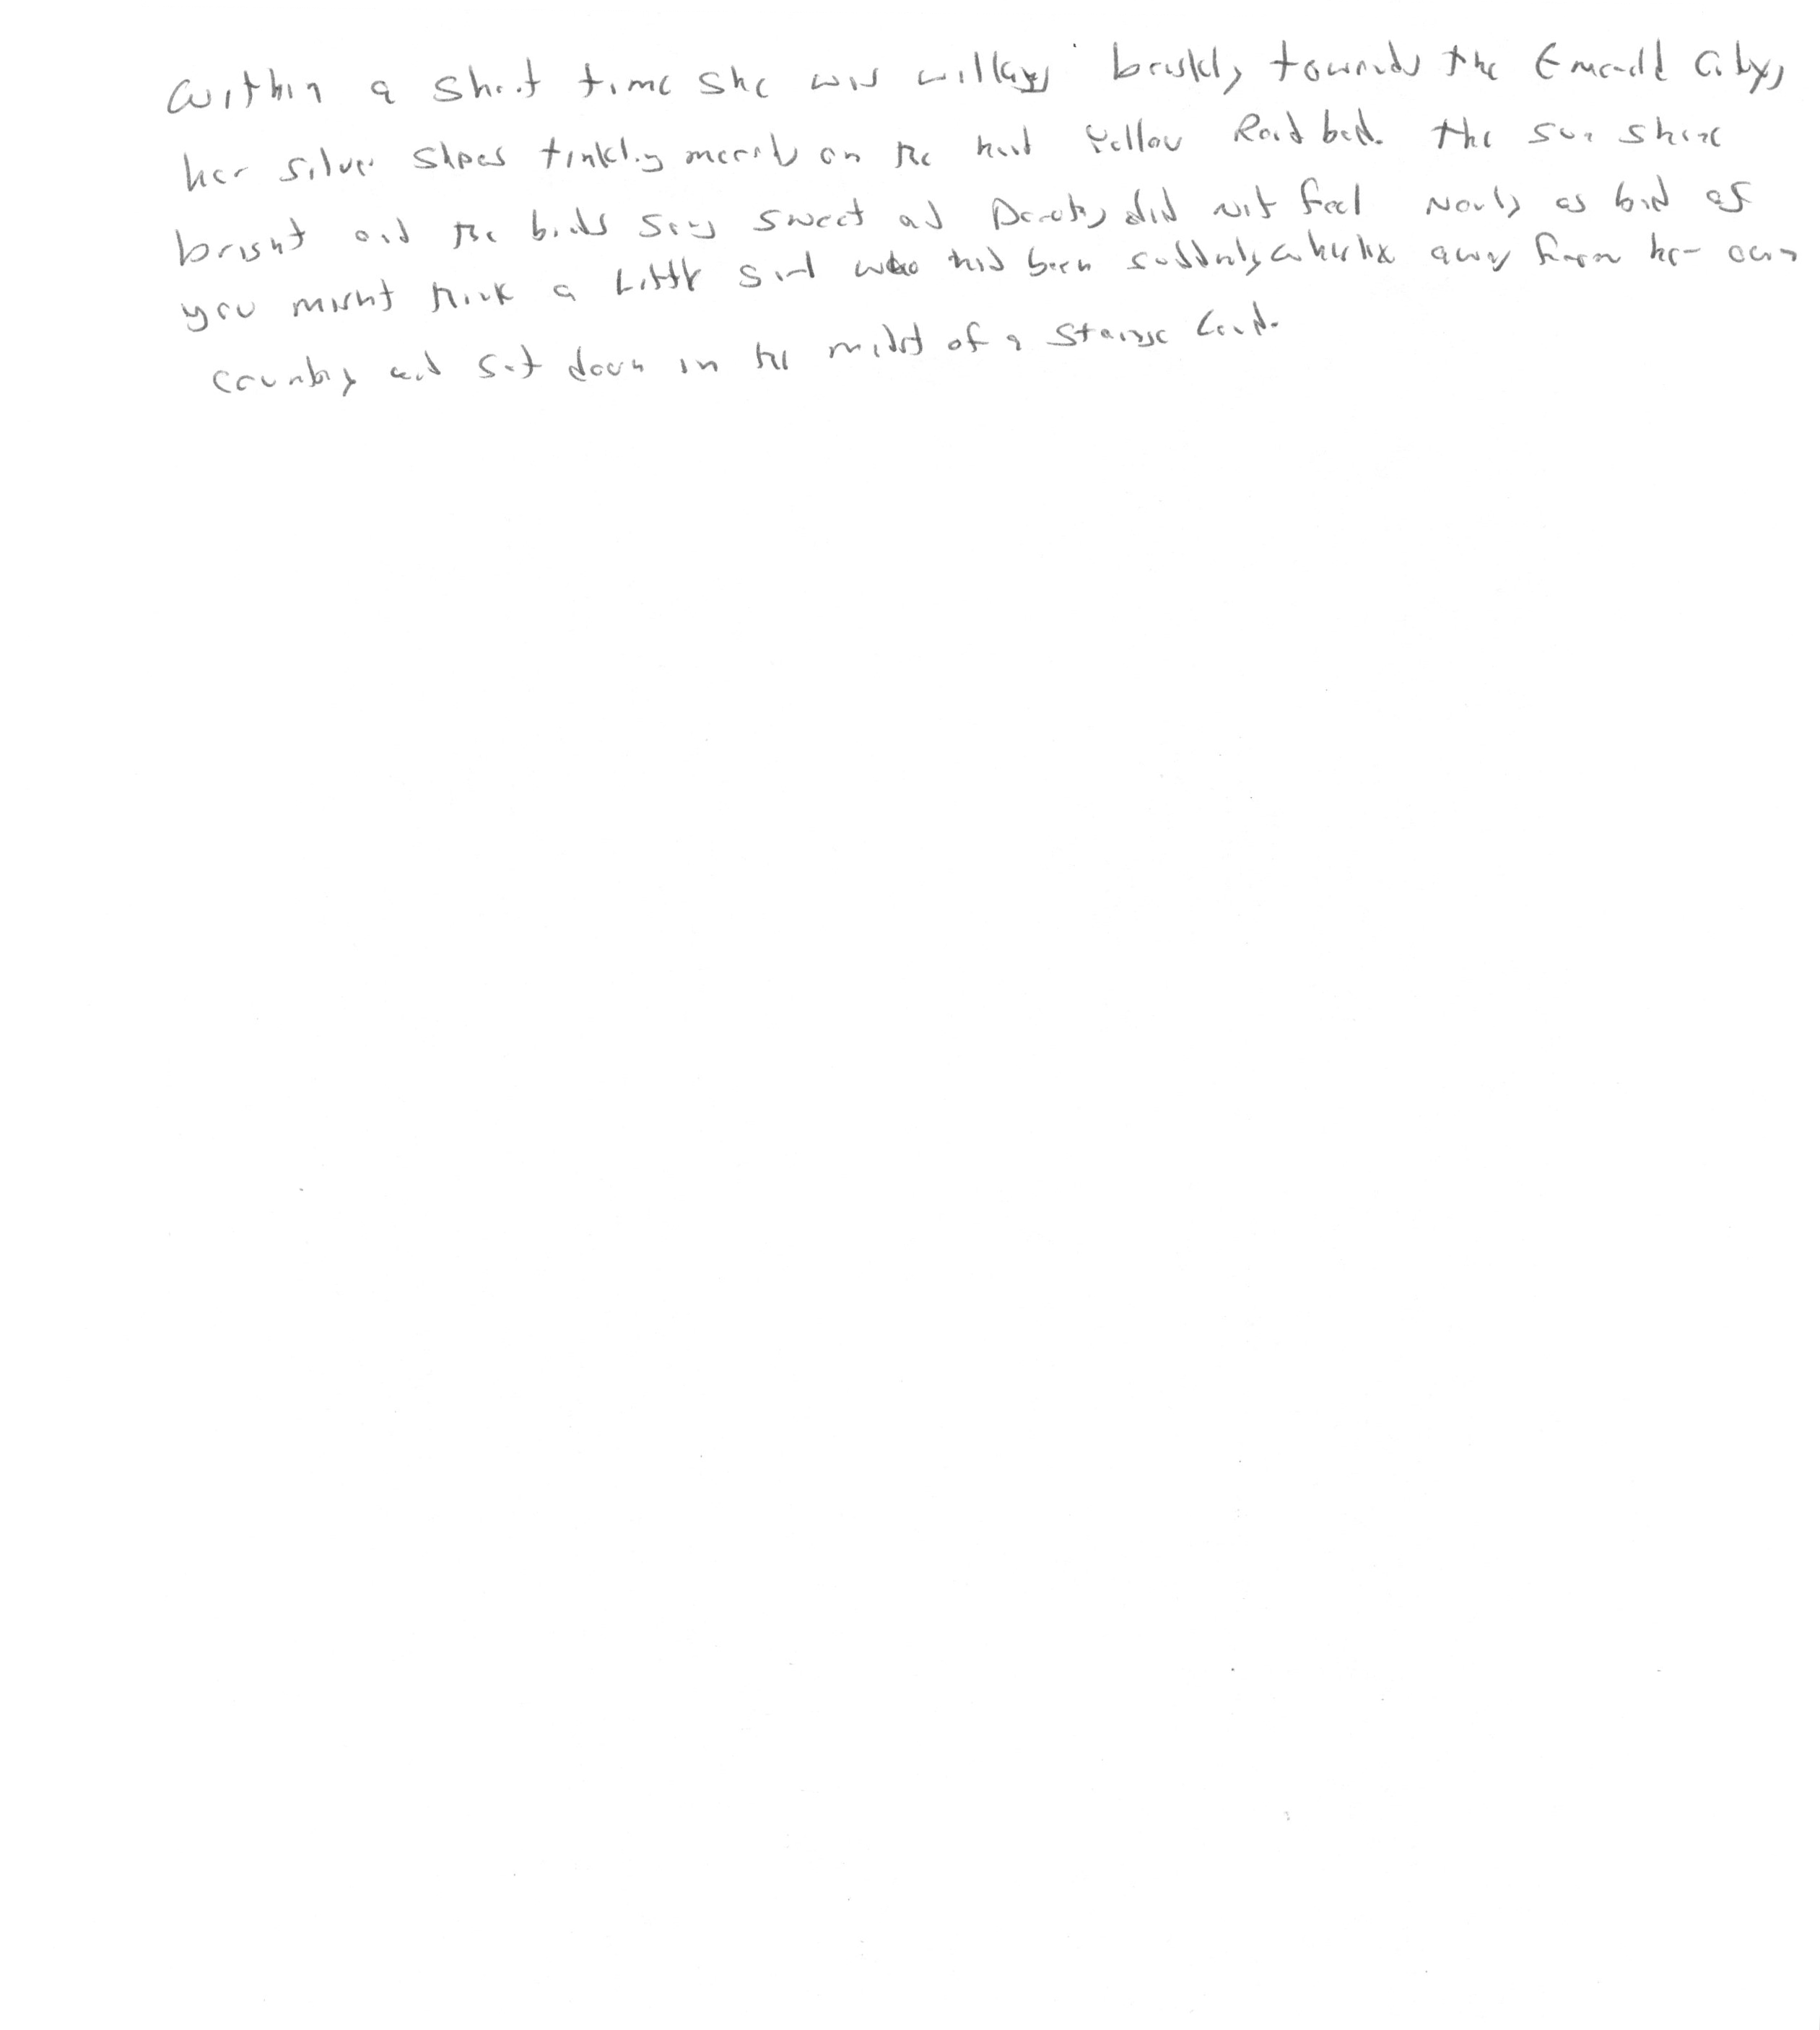 Within a short time she was walking briskly towards the Emerald City,
her silver shoes tinkling merrily on the hard Yellow Road bed. The sun shone
bright and the birds sang sweet and Dorothy did not feel nearly as bad as
you might think a Little girl who had been suddenly whisked away from her own
country and set down in the midst of a strange land.